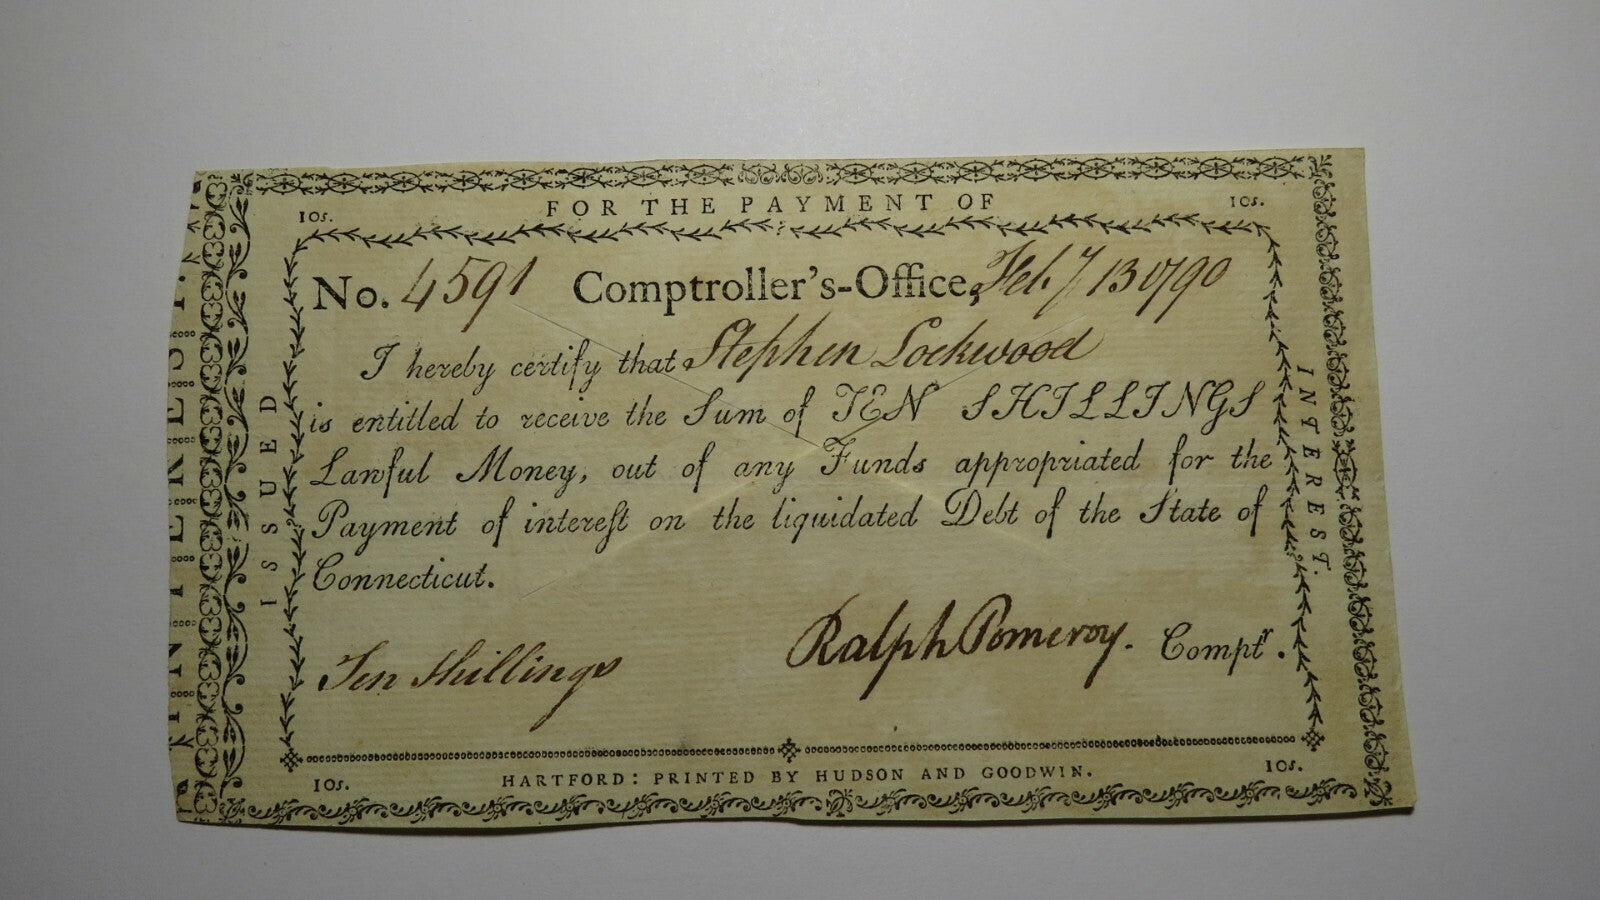 FOR THE PAYMENT OF
10s. 10s.
No. 4591 Comptroller's-Office, Feb 13 1790
I hereby certify that Stephen Lockwood
is entitled to receive the Sum of TEN SHILLINGS
Lawful Money, out of any Funds appropriated for the
Payment of intereſt on the liquidated Debt of the State of
Connecticut.
Ten Shillings
Ralph Pomeroy. Comptr.
10s. HARTFORD: PRINTED BY HUDSON AND GOODWIN. 10s.
ISSUED
INTEREST.